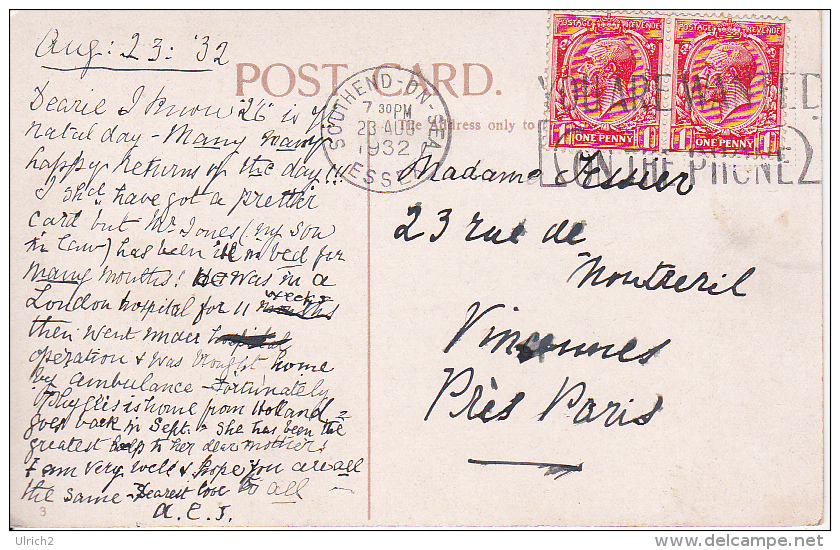 Aug: 23: '32
POST CARD.
The Address only to
SOUTHEND-ON-SEA
7 30PM
23 AUG
1932
ESSEX
POSTAGE REVENUE
ONE PENNY
POSTAGE REVENUE
ONE PENNY
YOU ARE WANTED
ON THE PHONE
Dearie I know 26 is yr
natal day - Many many
happy Returns of the day!!!
I shd have got a prettier
card but Mr Jones (my son
in law) has been ill in bed for
many months! He was in a
London hospital for 11 weeks
then went under
operation & was brought home
by ambulance - Fortunately
Phyllis is home from Holland -
goes back in Sept. - She has been the
greatest help to her dear mother.
I am very well & hope you are all
the same - Dearest love to all -
A.E.J.
Madame Tessier
23 rue de
Montreuil
Vincennes
Près Paris
3
Ulrich2
www.delcampe.net